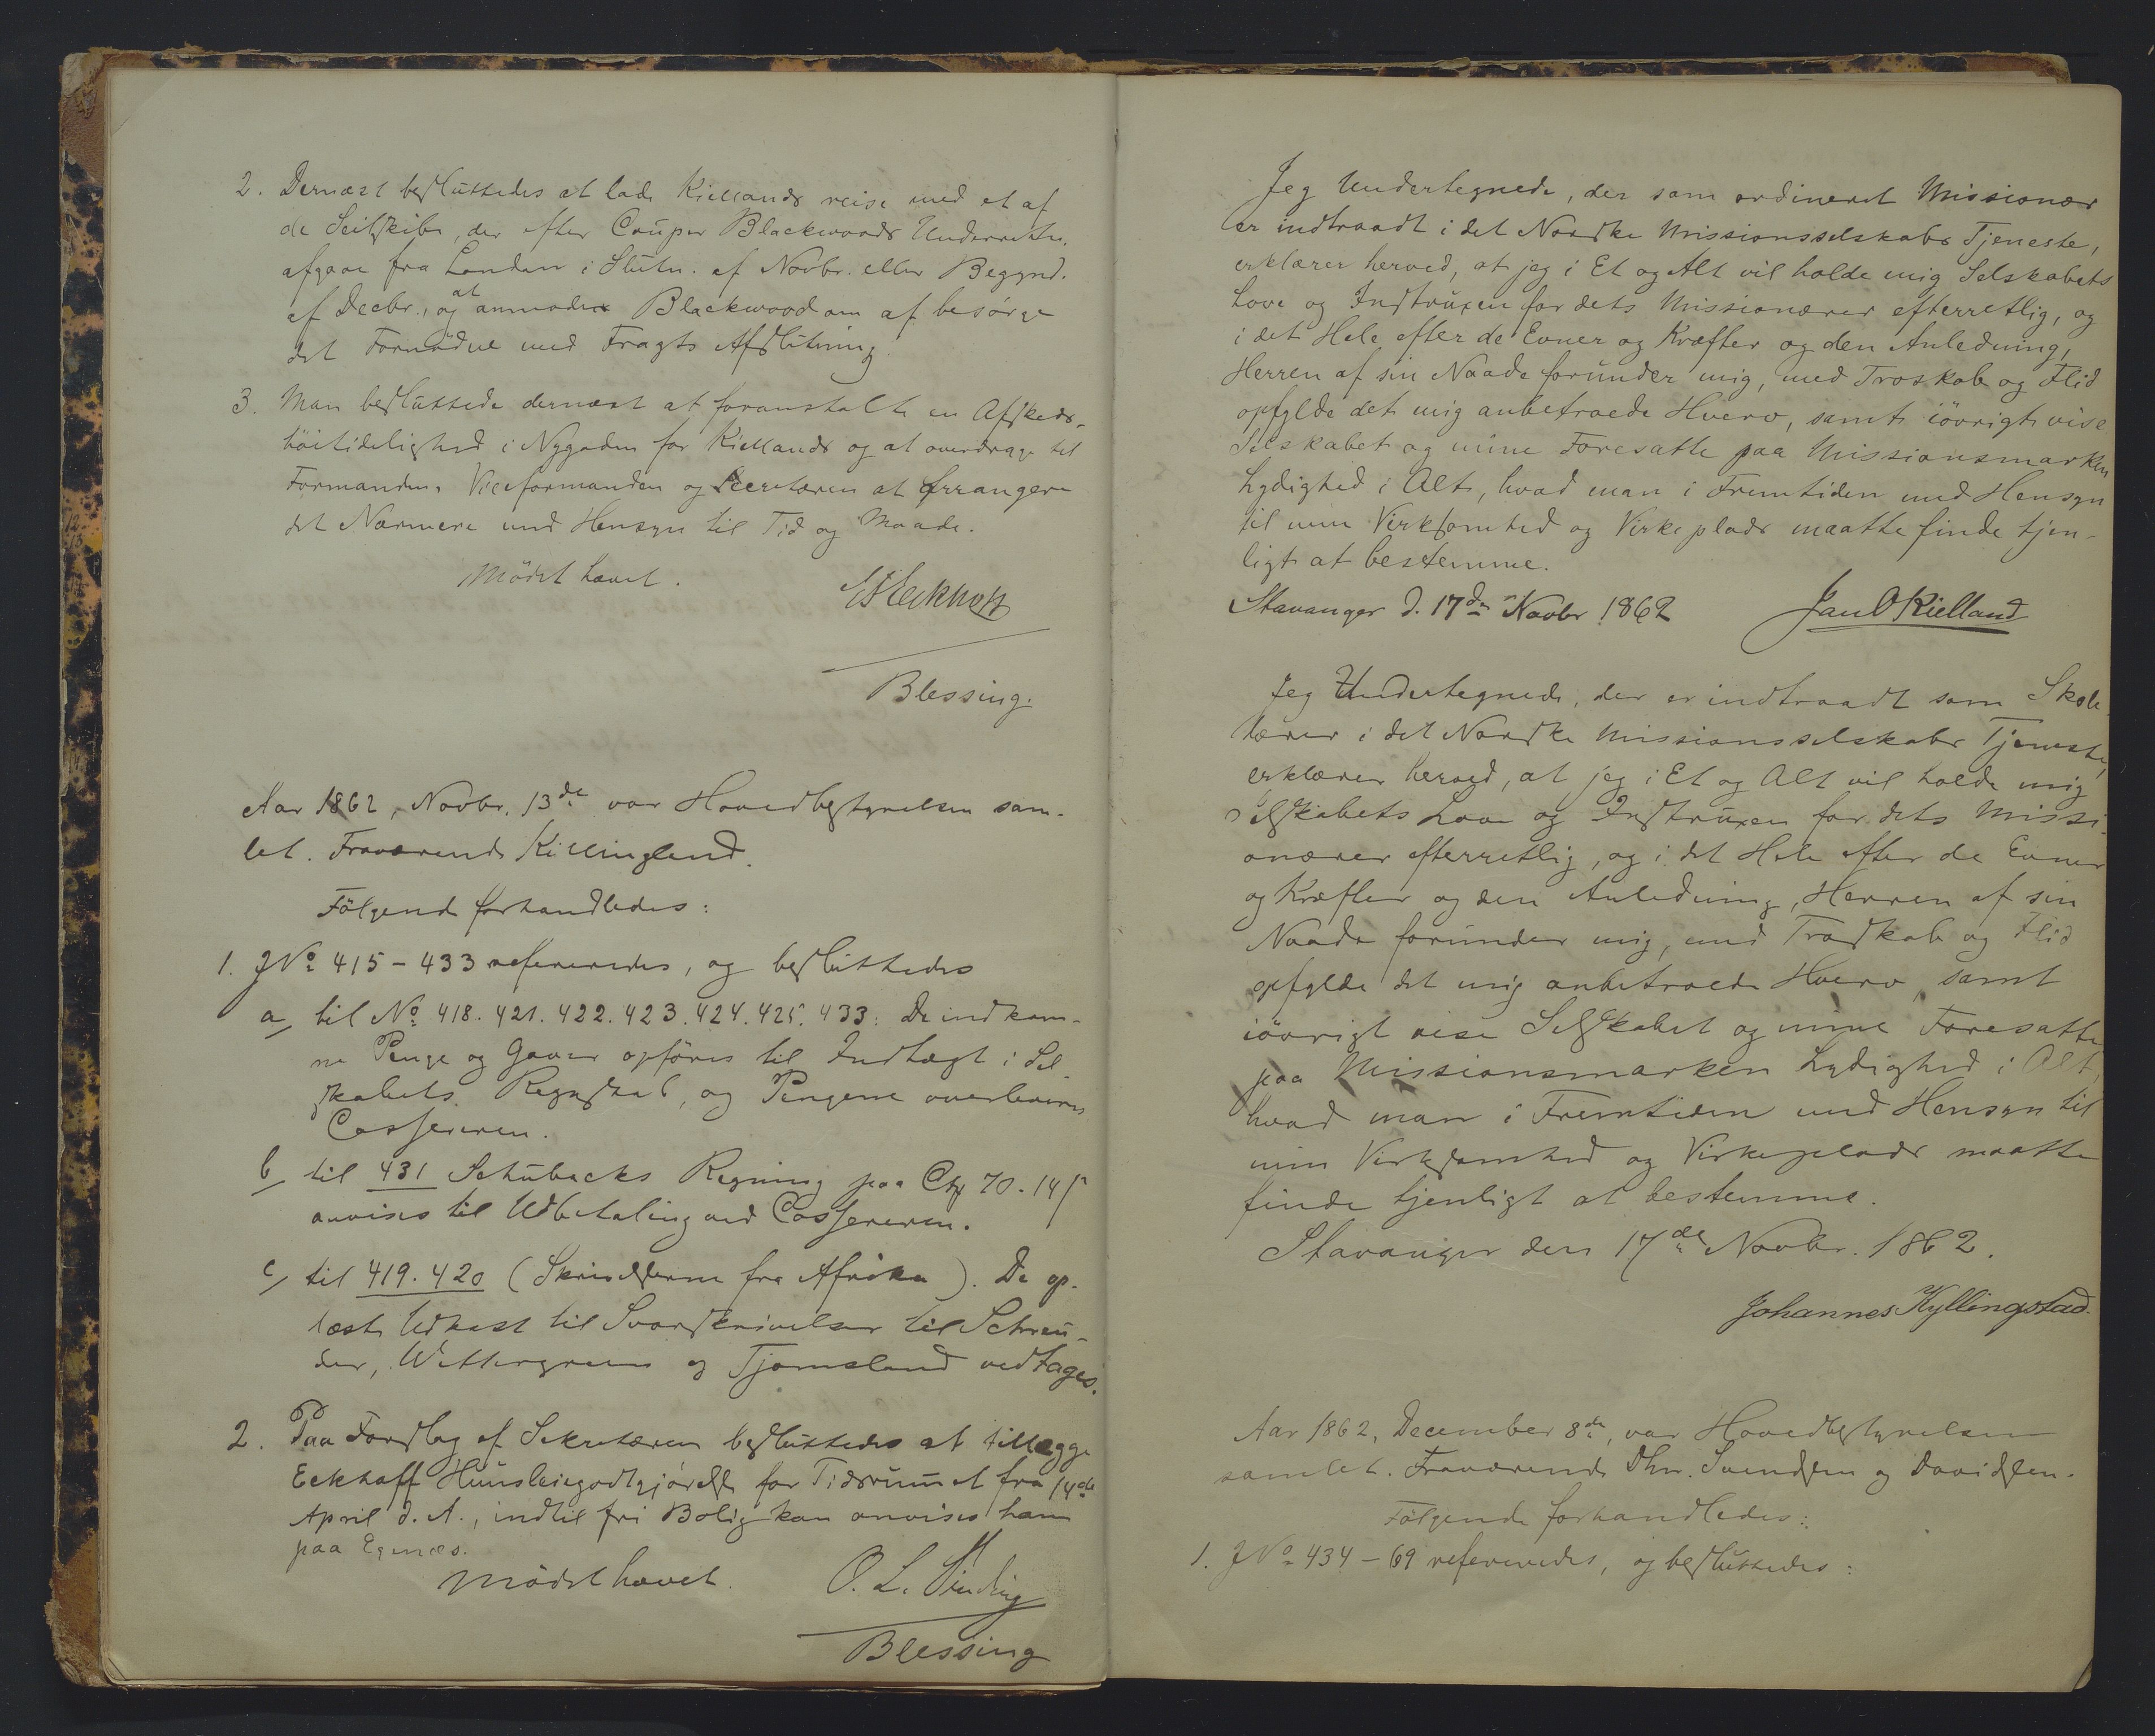 2. Dernæst besluttedes at lade Kiellands reise med et af
de Seilskibe, der efter Couper Blackwoods Underrettn.
afgaae fra London i Slutn. af Novbr. eller Beggynd.
af Decbr., og at anmode Blackwood om at besørge
det Fornødne med Fragts Afslutning.
3. Man besluttede dernæst at foranstalte en Afskeds-
höitidelighed i Nygaden for Kiellands og at overdrage til
Formanden, Viceformanden og Secretæren at arrangere
det Nærmere med Hensyn til Tid og Maade.
Mödet hævet.
Eckhoff
Blessing.
Aar 1862, Novbr. 13de var Hovedbestyrelsen sam-
let. Fraværende Killingland.
Fölgende forhandledes:
1. JNo 415-433 refereredes, og besluttedes
a, til No 418. 421. 422. 423. 424. 425. 433: De indkom-
ne Penge og Gaver opföres til Indtægt i Sel
skabets Regnskab, og Pengene overleveres
Cassereren.
b, til 431 Schubacks Regning paa 70. 14
anvises til Udbetaling ved Cassereren.
c, til 419. 420 (Skrivelserne fra Afrika). De op-
læste Udkast til Svarskrivelser til Schreu-
der, Wettergreen og Tjomsland vedtages.
2. Paa Forslag af Sekretæren besluttedes at tillægge
Eckhoff Huusleiegodtgjörelse for Tidsrummet fra 14de
April d. A., indtil fri Bolig kan anvises ham
paa Egenæs.
Mödet hævet.
O. L. Sinding
Blessing
Jeg Undertegnede, der som ordineret Missionær
er indtraadt i det Norske Missionsselskabs Tjeneste,
erklærer herved, at jeg i Et og Alt vil holde mig Selskabets
Love og Instruxen for dets Missionærer efterretlig, og
i det Hele efter de Evner og Kræfter og den Anledning,
Herren af sin Naade forunder mig, med Troskab og Flid
opfylde det mig anbetroede Hverv, samt iövrigt vise
Selskabet og mine Foresatte paa Missionsmarken
Lydighed i Alt, hvad man i Fremtiden med Hensyn
til min Virksomhed og Virkeplads maatte finde tjen-
ligt at bestemme.
Stavanger d. 17de Novbr 1862
Jan O Kielland
Jeg Undertegnede, der er indtraadt som Skole-
lærer i det Norske Missionsselskabs Tjeneste,
erklærer herved, at jeg i Et og Alt vil holde mig
Selskabets Love og Instruxen for dets Missi-
onærer efterretlig, og i det Hele efter de Evner
og Kræfter og den Anledning, Herren af sin
Naade forunder mig, med Troskab og Flid
opfylde det mig anbetroede Hverv, samt
iövrigt vise Selskabet og mine Foresatte
paa Missionsmarken Lydighed i Alt,
hvad man i Fremtiden med Hensyn til
min Virksomhed og Virkeplads maatte
finde tjenligt at bestemme.
Stavanger den 17de Novbr. 1862.
Johannes Kyllingstad.
Aar 1862, December 8de, var Hovedbestyrelsen
samlet. Fraværende Dhrr. Svendsen og Davidsen.
Fölgende forhandledes:
1. JNo 434-69 refereredes, og besluttedes: